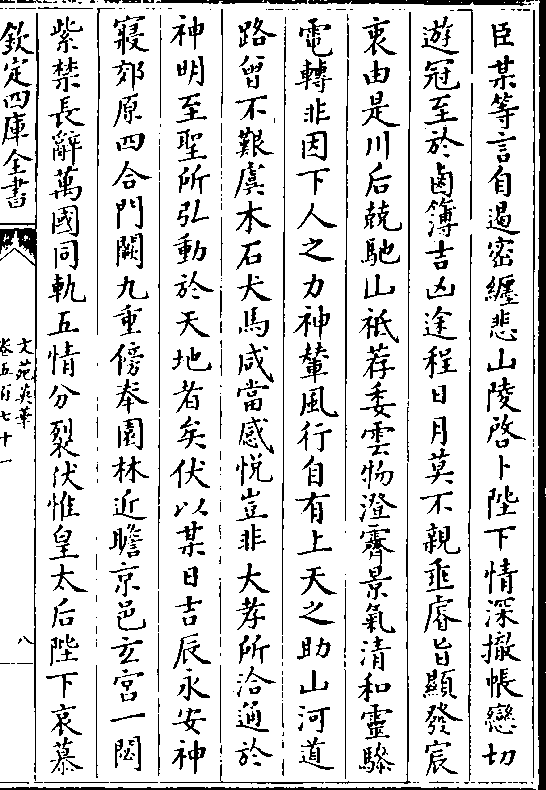 臣某等言自遏密纒悲山陵啓卜陛下情深撤帳戀切
遊冠至於鹵簿吉凶途程日月莫不親垂睿旨顯發宸
衷由是川后兢馳山祇荐委雲物澄霽景氣清和靈駼
電轉非因下人之力神輦風行自有上天之助山河道
路曾不艱虞木石犬馬咸當感悦豈非大孝所洽通於
神明至聖所弘動於天地者矣伏以某日吉辰永安神
寢郊原四合門闕九重傍奉園林近瞻京邑玄宫一閟
紫禁長辭萬國同軌五情分裂伏惟皇太后陛下哀慕
欽定四庫全書
文苑英華
卷五百七十一
八